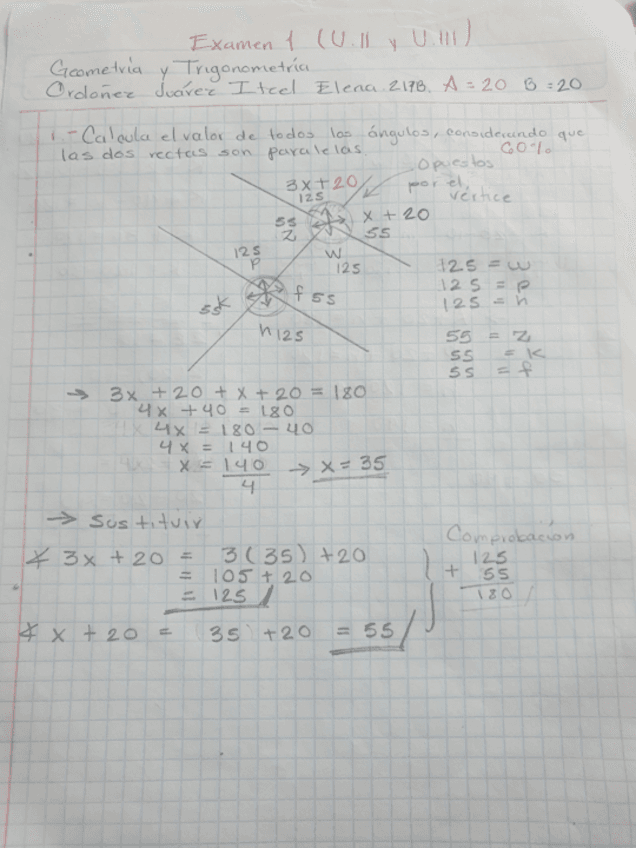 Examen 1 (U.II y U.III)
Geometría y Trigonometría
Ordoñez Juárez Itcel Elena. 217B. A = 20 B = 20
1.- Calcula el valor de todos los ángulos, considerando que
las dos rectas son paralelas. 60%
Opuestos
por el
vértice
3x+20
125
55
Z
x + 20
55
W
125
125
P
55 K
f 55
h 125
125 = w
125 = p
125 = h
55 = Z
55 = K
55 = f
→ 3x + 20 + x + 20 = 180
4x + 40 = 180
4x = 180 - 40
4x = 140
x = 140
4
→ x = 35
→ Sustituir
∡ 3x + 20 = 3(35) + 20
= 105 + 20
= 125
∡ x + 20 = (35) + 20 = 55
Comprobación
125
+ 55
180